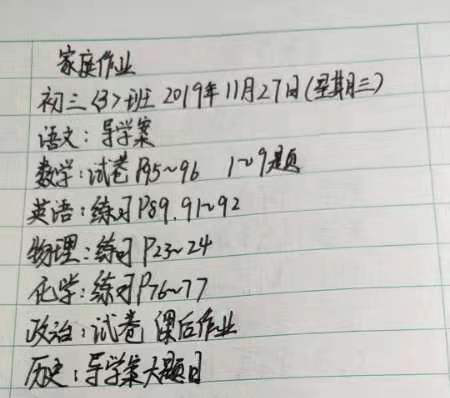 家庭作业
初三<3>班 2019年11月27日(星期三)
语文:导学案
数学:试卷P95~96 1~9题
英语:练习P89.91~92
物理:练习P23~24
化学:练习P76~77
政治:试卷 课后作业
历史:导学案大题目